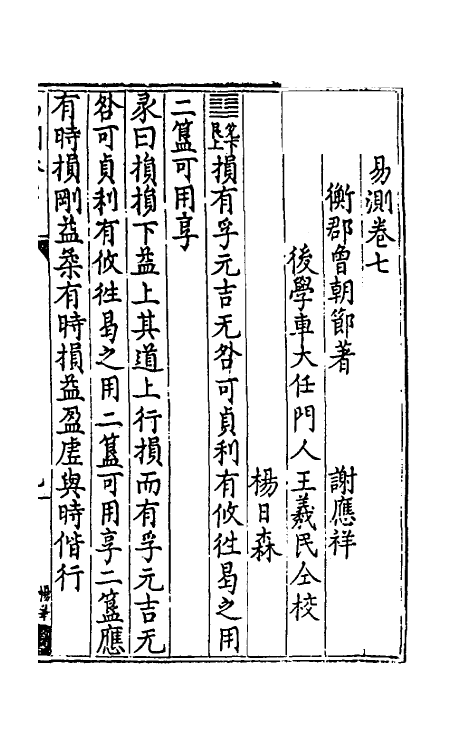 易測卷七
衡郡曾朝節著　謝應祥
後學車大任門人王羲民仝校
楊日森
䷨兌下艮上損有孚元吉无咎可貞利有攸徃曷之用
二簋可用享
彖曰損損下益上其道上行損而有孚元吉无
咎可貞利有攸徃曷之用二簋可用享二簋應
有時損剛益柔有時損益盈虛與時偕行